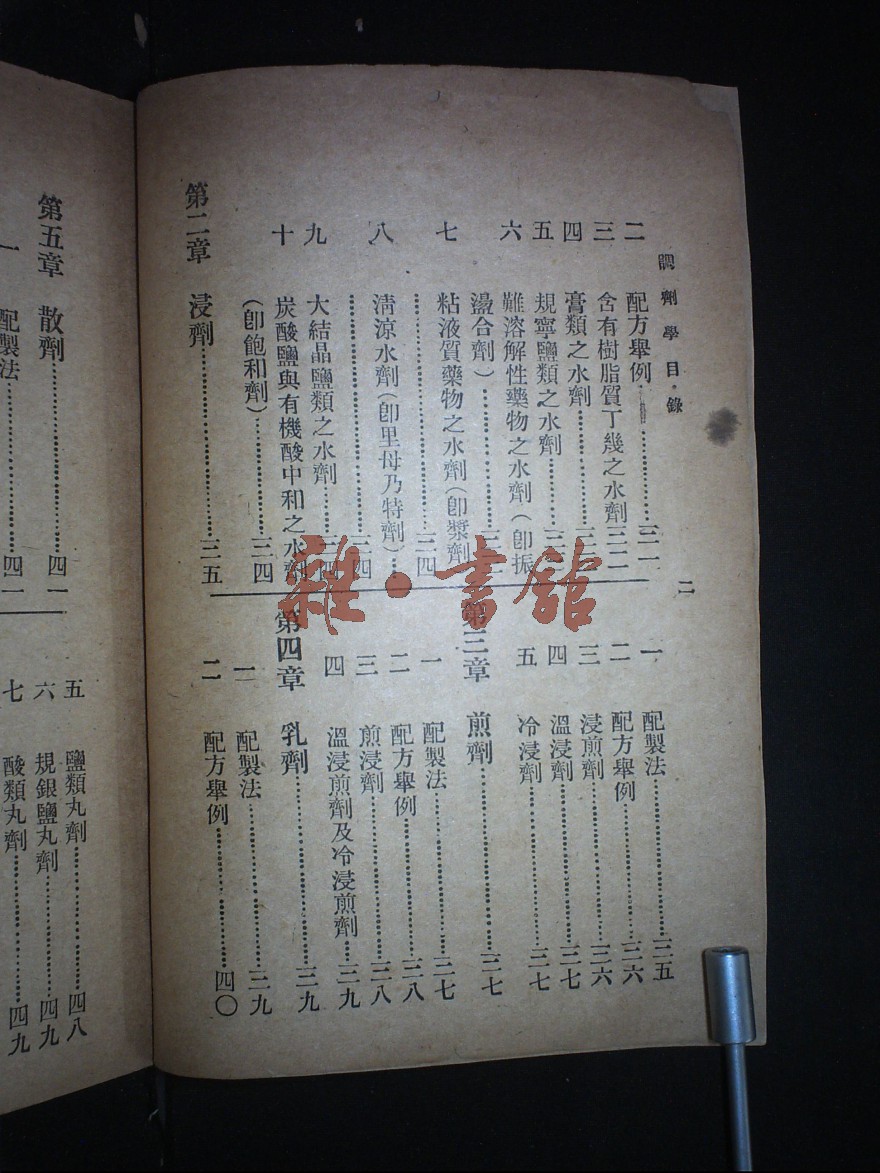 調劑學 目錄
二
二 配方舉例……三一
三 含有樹脂質丁幾之水劑三二
四 膏類之水劑……三二
五 規寧鹽類之水劑……三三
六 難溶解性藥物之水劑（卽振
盪合劑）……三三
七 粘液質藥物之水劑（卽漿劑
……三四
八 淸涼水劑（卽里母乃特劑）…
……三四
九 大結晶鹽類之水劑……三四
十 炭酸鹽與有機酸中和之水劑
（卽飽和劑）……三四
第二章 浸劑……三五
一 配製法……三五
二 配方舉例……三六
三 浸煎劑……三六
四 溫浸劑……三七
五 冷浸劑……三七
第三章 煎劑……三七
一 配製法……三七
二 配方舉例……三八
三 煎浸劑……三八
四 溫浸煎劑及冷浸煎劑…三九
第四章 乳劑……三九
一 配製法……三九
二 配方舉例……四〇
第五章 散劑……四一
一 配製法……四一
五 鹽類丸劑……四八
六 規銀鹽丸劑……四九
七 酸類丸劑……四九
雜·書館